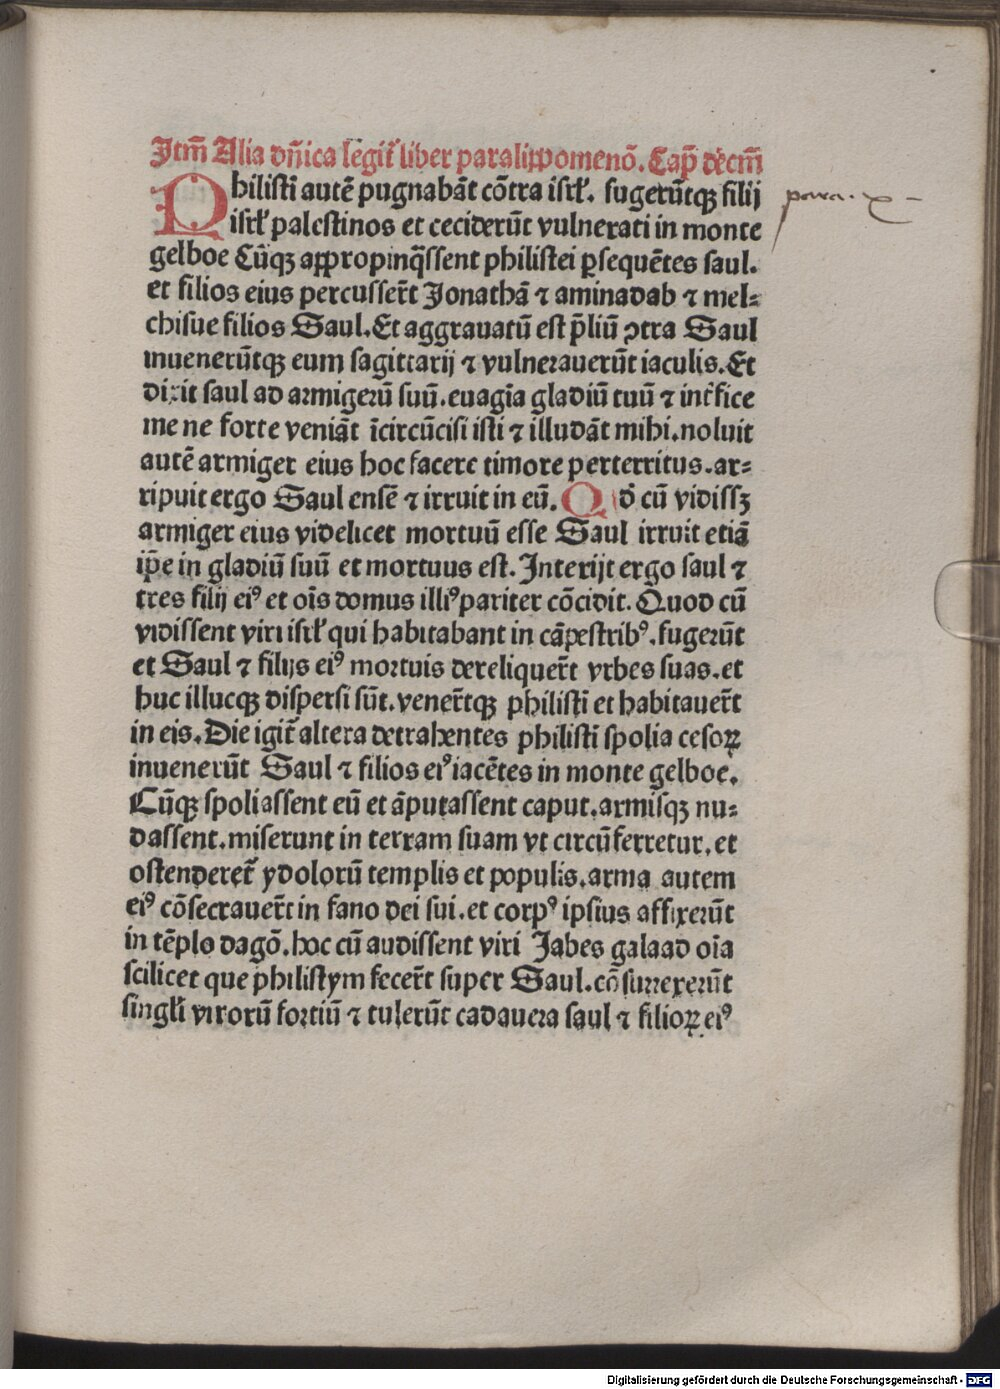 Itm̄ Alia dn̄ica legit᷑ liber paralippomenō. Cap̄ decm̄
Philisti autē pugnabāt cōtra isrł. fugerūtqꝫ filij
isrł palestinos et ceciderūt vulnerati in monte
gelboe Cūqꝫ appropinq̄ssent philistei ꝑsequētes saul.
et filios eius percusser̄t Jonathā ⁊ aminadab ⁊ mel⸗
chisue filios Saul. Et aggrauatū est p̄liū ꝯtra Saul
inuenerūtqꝫ eum sagittarij ⁊ vulnerauerūt iaculis. Et
dixit saul ad armigerū suū. euagīa gladiū tuū ⁊ int̄fice
me ne forte veniāt īcircūcisi isti ⁊ illudāt mihi. noluit
autē armiger eius hoc facere timore perterritus. ar⸗
ripuit ergo Saul ensē ⁊ irruit in eū. Qd̄ cū vidissꝫ
armiger eius videlicet mortuū esse Saul irruit etiā
ip̄e in gladiū suū et mortuus est. Interijt ergo saul ⁊
tres filij eiꝰ et oīs domus illiꝰ pariter cōcidit. Quod cū
vidissent viri isrł qui habitabant in cāpestribꝰ. fugerūt
et Saul ⁊ filijs eiꝰ mortuis dereliquer̄t vrbes suas. et
huc illucqꝫ dispersi sūt. vener̄tqꝫ philisti et habitauer̄t
in eis. Die igit᷑ altera detrahentes philisti spolia cesoꝝ
inuenerūt Saul ⁊ filios eiꝰ iacētes in monte gelboe.
Cūqꝫ spoliassent eū et āputassent caput. armisqꝫ nu⸗
dassent. miserunt in terram suam vt circūferretur. et
ostenderet᷑ ydolorū templis et populis. arma autem
eiꝰ cōsecrauer̄t in fano dei sui. et corpꝰ ipsius affixerūt
in tēplo dagō. hoc cū audissent viri Jabes galaad oīa
scilicet que philistym fecer̄t super Saul. cōsurrexerūt
singl̄i virorū fortiū ⁊ tulerūt cadauera saul ⁊ filioꝝ eiꝰ
para. x
Digitalisierung gefördert durch die Deutsche Forschungsgemeinschaft - DFG